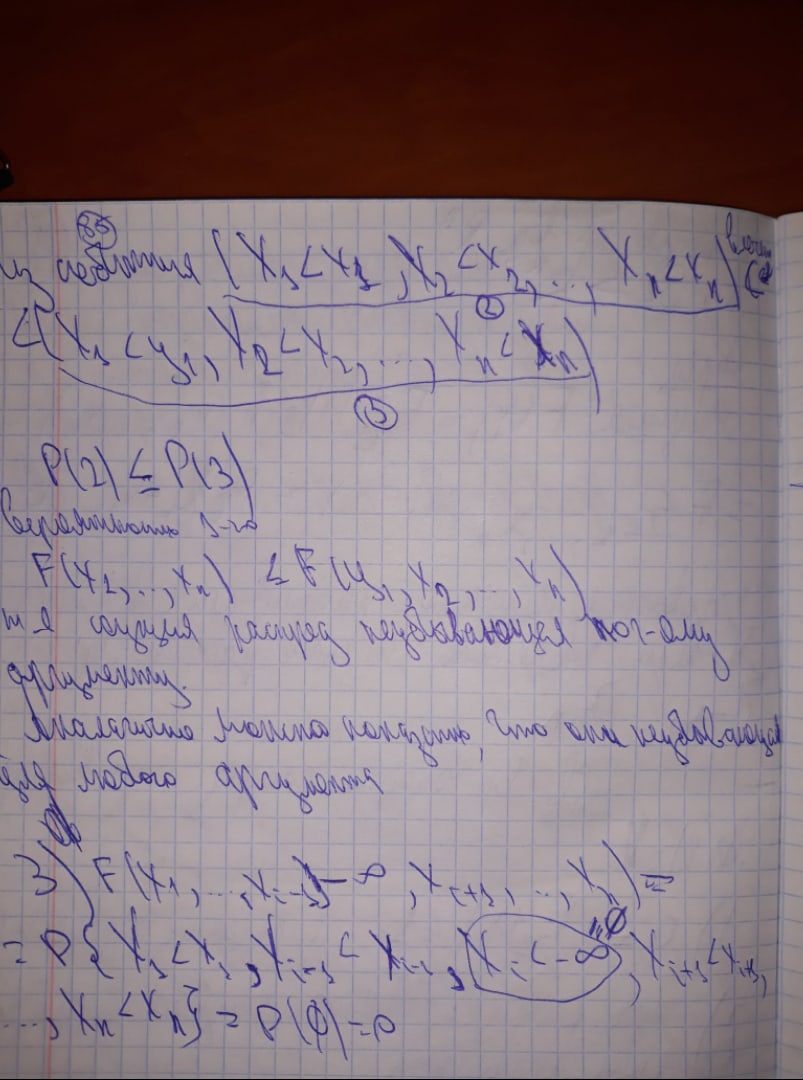 85
из события (X₁<x₁, X₂<x₂, ..., Xₙ<xₙ)
②
⊂(X₁<y₁, X₂<x₂, ..., Xₙ<xₙ)
③
P(2) ≤ P(3)
вероятность 1-го
F(x₂, ..., xₙ) ≤ F(y₁, x₂, ..., xₙ)
распред неубывающая по 1-ому
аргументу.
Аналогично можно показать, что она неубывающая
для любого аргумента
3) F(x₁, ..., xᵢ₋₁, -∞, xᵢ₊₁, ..., xₙ) =
"∅
= P{X₁<x₁, Xᵢ₋₁<xᵢ₋₁, Xᵢ<-∞, Xᵢ₊₁<xᵢ₊₁,
..., Xₙ<xₙ} = P(∅) = 0